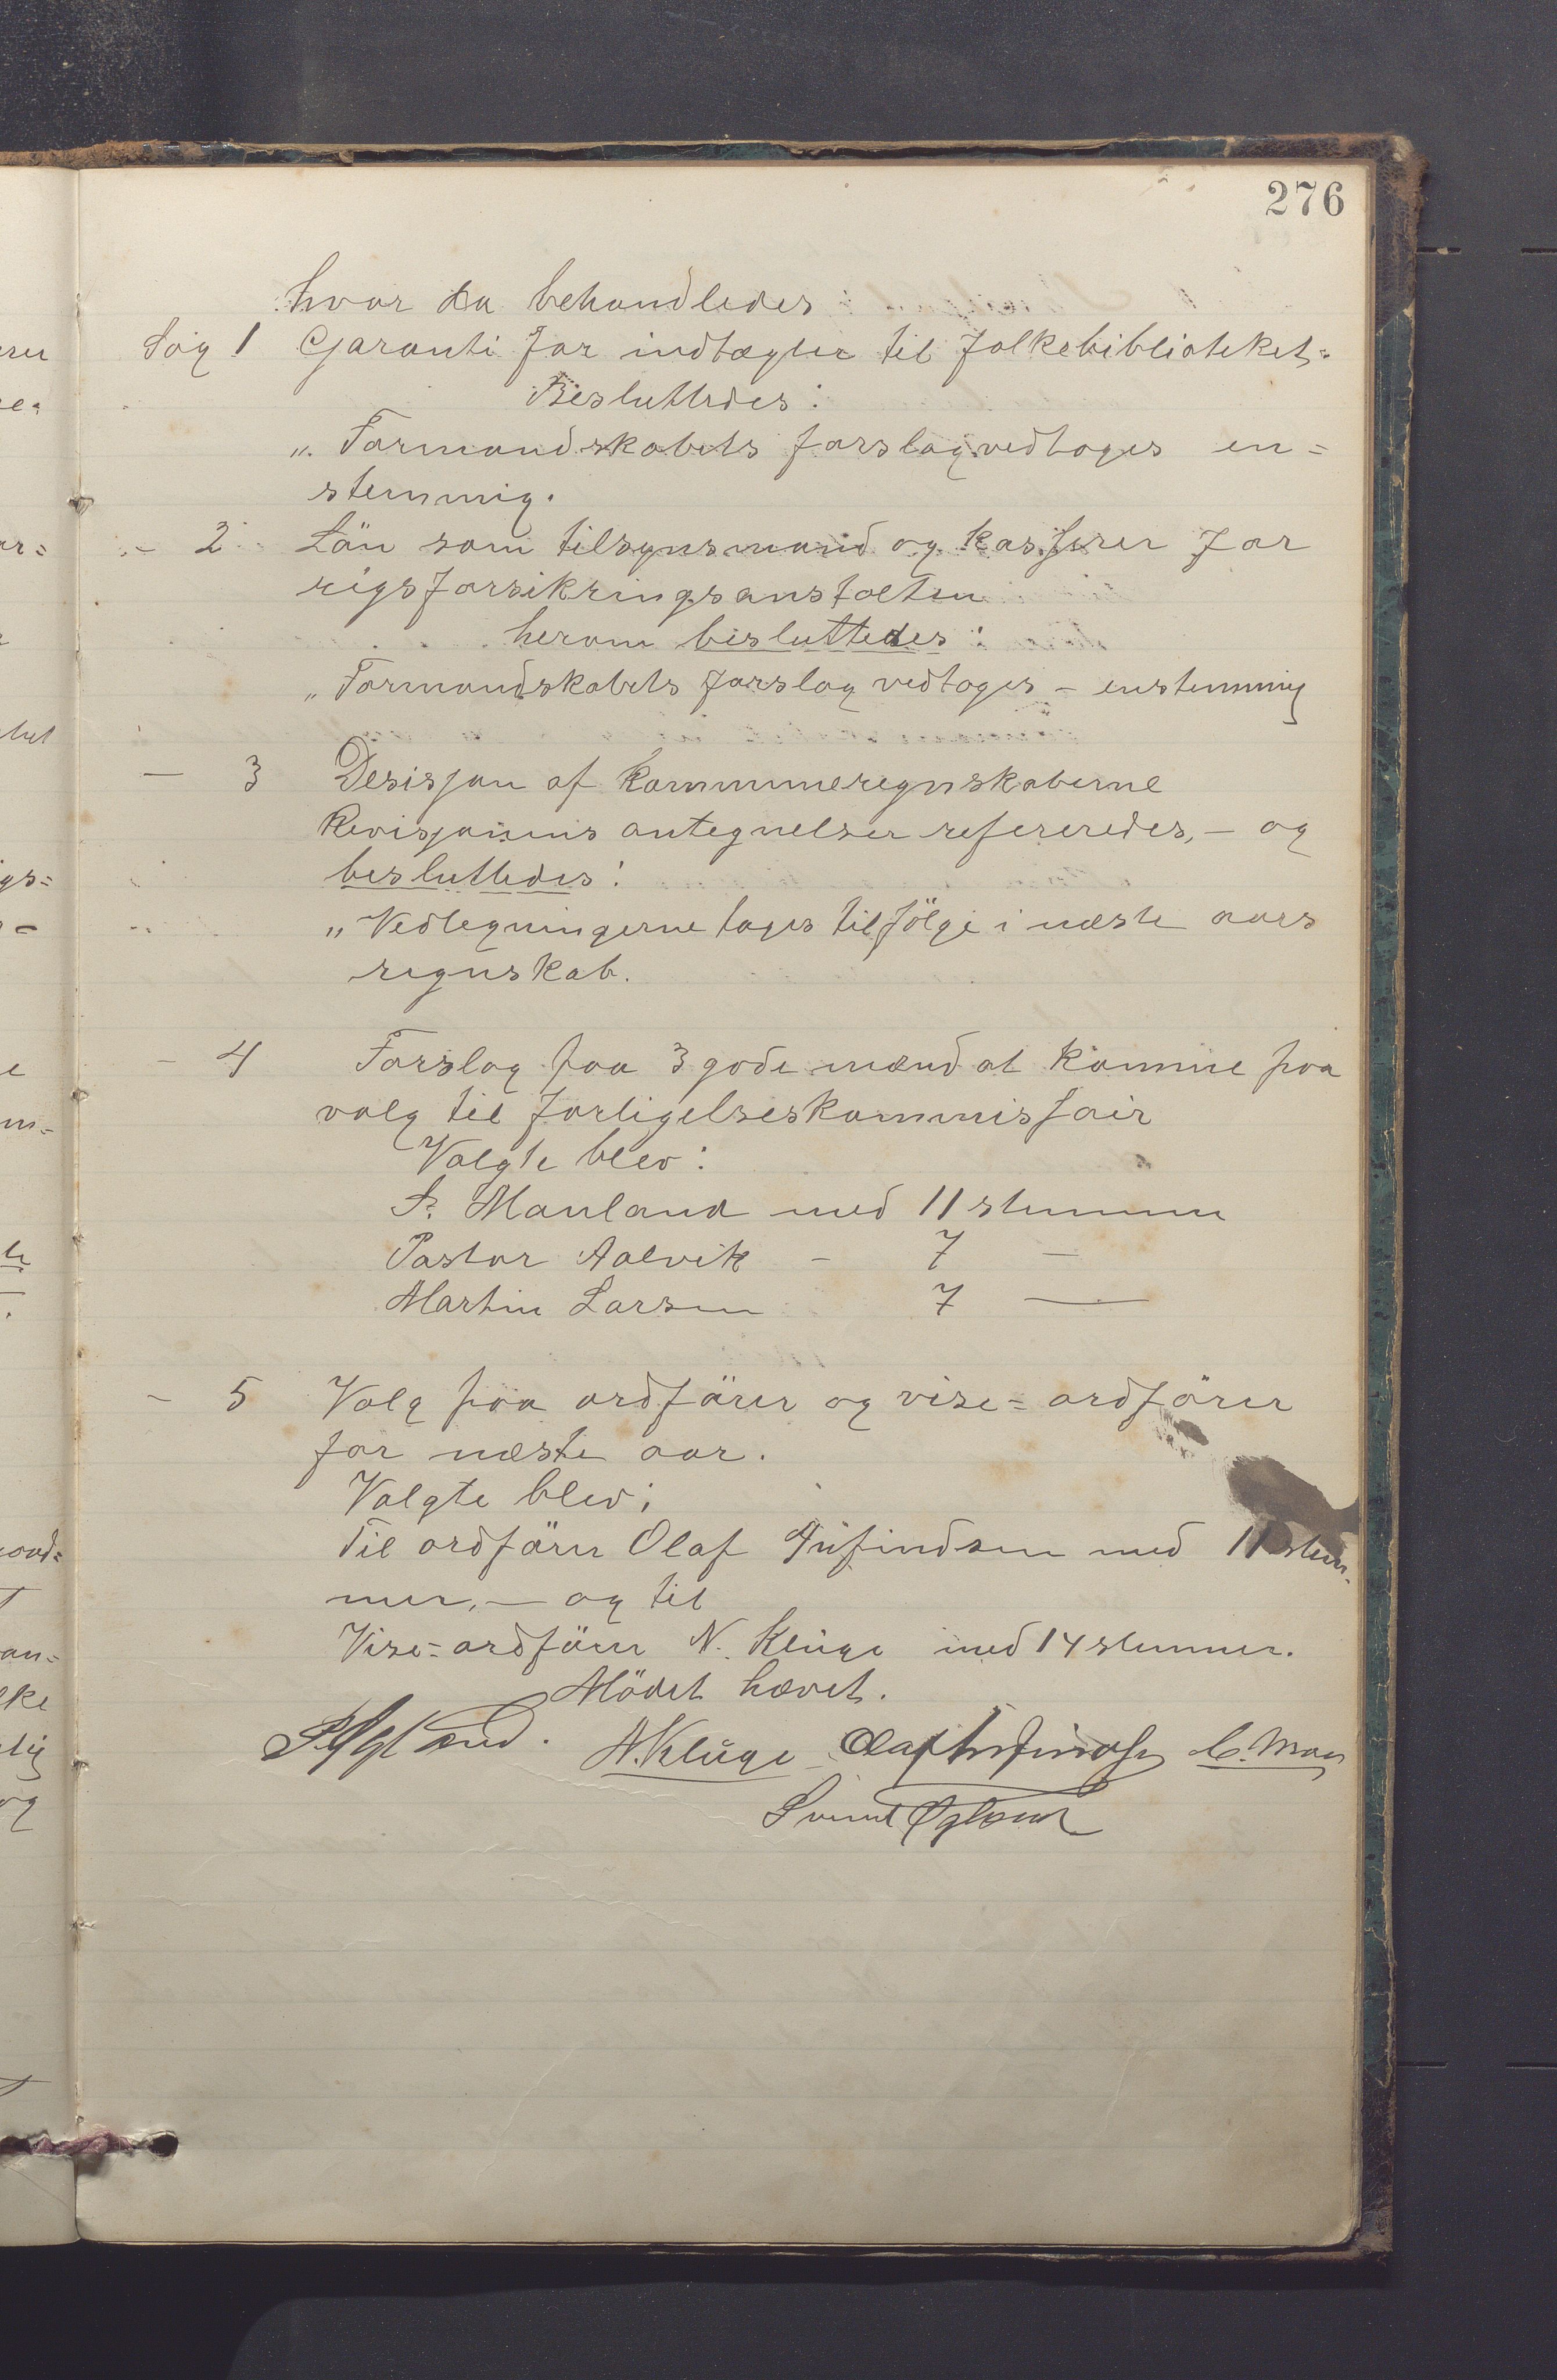 276
hvor da behandledes
Sag 1 Garanti for indtægter til folkebiblioteket.
Besluttedes:
„ Formandskabets forslag vedtoges en=
stemmig.
– 2 Lön som tilsynsmand og kasserer for
rigsforsikringsanstalten
herom besluttedes:
„ Formandskabets forslag vedtoges – enstemmig
– 3 Desisjon af kommuneregnskaberne
Revisjonens antegnelser refereredes, – og
besluttedes:
„ Vedtegningerne tages tilfölge i næste aars
regnskab.
– 4 Forslag paa 3 gode mænd at komme paa
valg til forligelseskommissair
Valgte blev:
S. Mauland med 11 stemmer
Pastor Aalvik – 7 —
Martin Larsen 7 —
– 5 Valg paa ordförer og vise=ordförer
for næste aar.
Valgte blev:
Til ordförer Olaf Trüfindsen med 11 stem-
mer, – og til
Vise=ordförer N. Kluge med 14 stemmer.
Mödet hævet.
N. Kluge